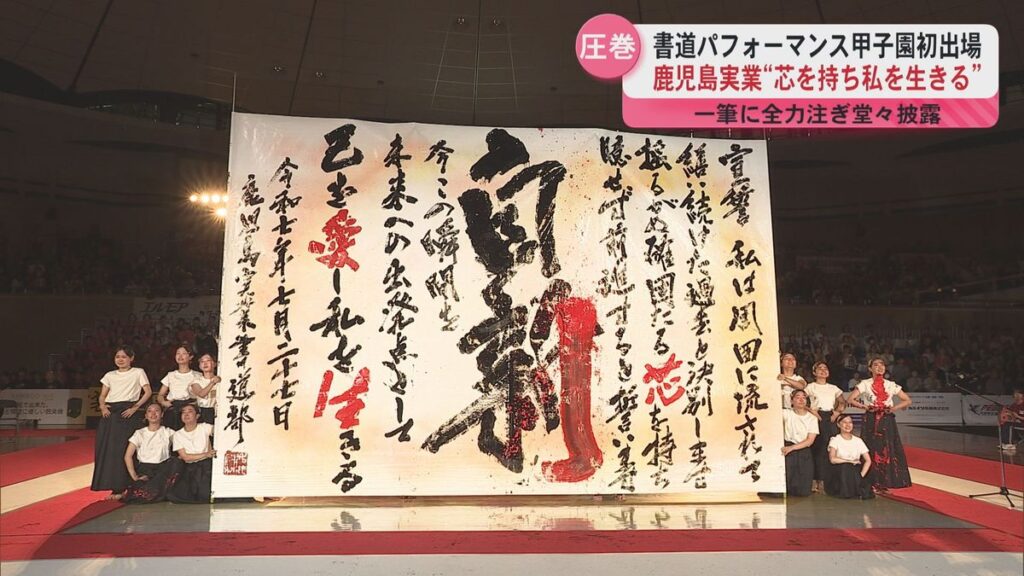 圧巻
書道パフォーマンス甲子園初出場
鹿児島実業“芯を持ち私を生きる”
一筆に全力注ぎ堂々披露
宣誓 私は周囲に流されて
繕い続けた過去と決別します
揺るがぬ確固たる芯を持ち
臆せず前進すると誓います
今この瞬間を
未来への出発点として
己を愛し私を生きる
令和七年七月二十七日
鹿児島実業書道部
エルモア